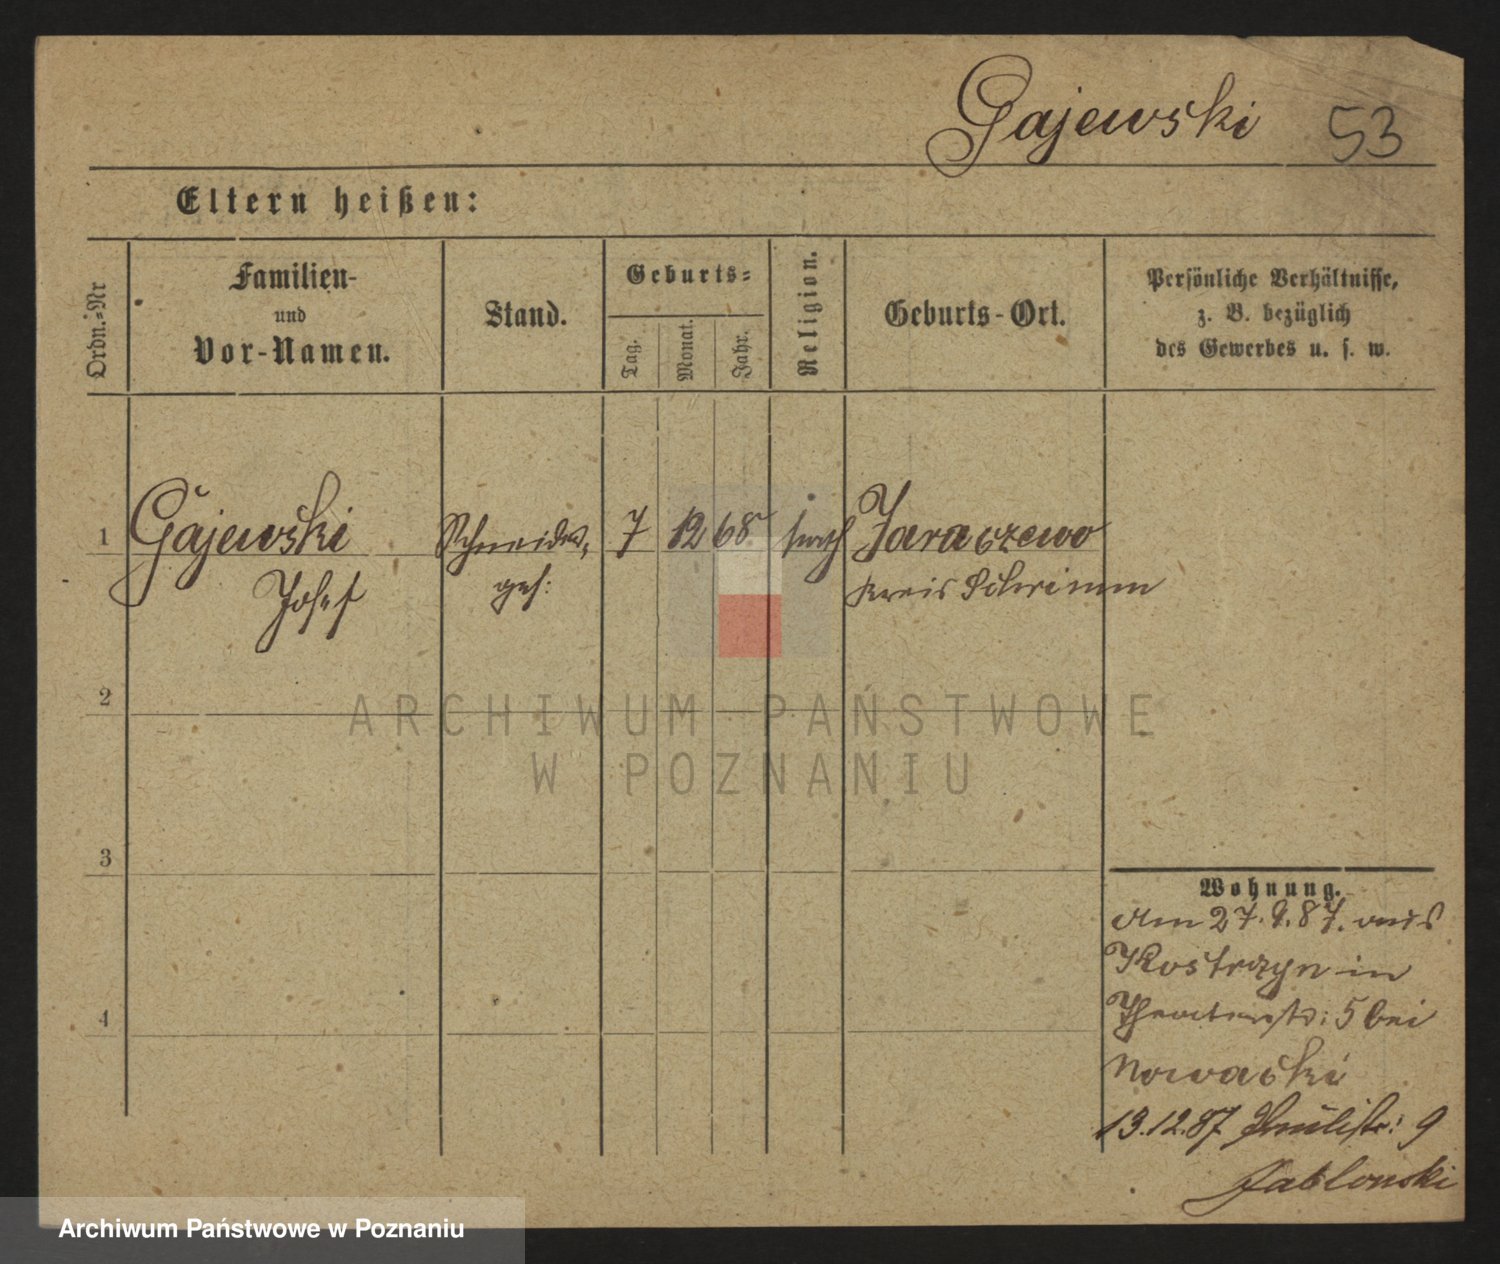 Gajewski 53
Eltern heißen:
Ordn.=Nr
Familien-
und
Vor-Namen.
Stand.
Geburts=
Tag.
Monat.
Jahr.
Religion.
Geburts-Ort.
Persönliche Verhältnisse,
z. B. bezüglich
des Gewerbes u. s. w.
1 Gajewski Schneider, 7 12 68 kath Jaraczewo
Josef ges: Kreis Schrimm
2
3
4
Wohnung.
Am 27. 9. 87. aus
Kostrzyn in
Theaterstr: 5 bei
Nowacki
13.12.87 9
Jablonski
ARCHIWUM PAŃSTWOWE
W POZNANIU
Archiwum Państwowe w Poznaniu